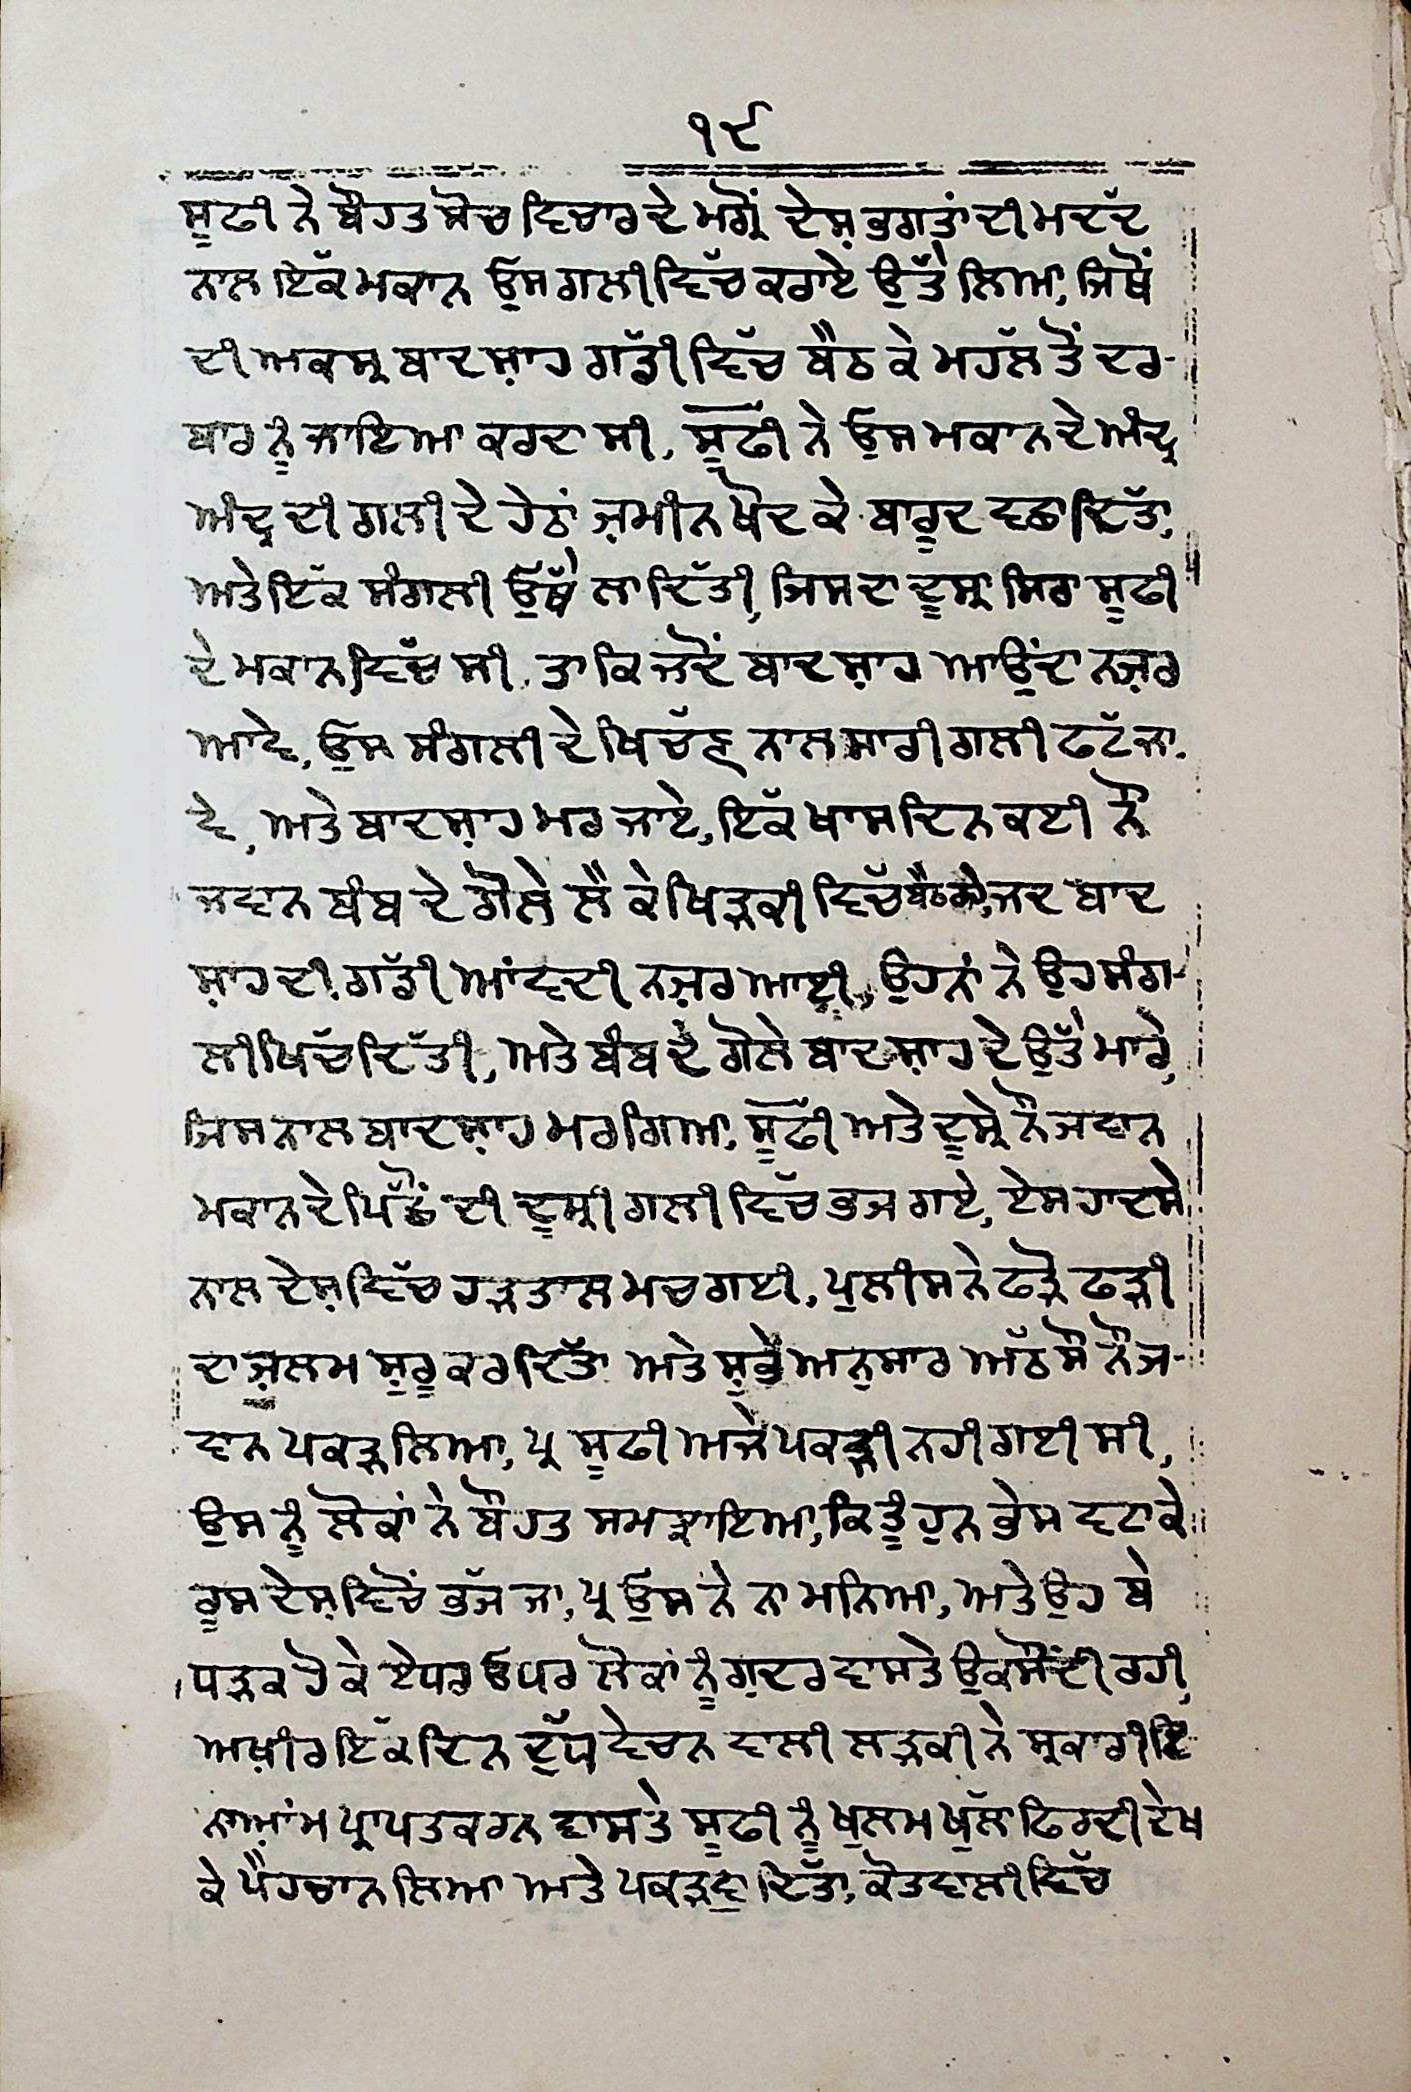 ੧੯
ਸੂਫੀ ਨੇ ਬੌਹਤ ਸੋਚ ਵਿਚਾਰ ਦੇ ਮਗ੍ਰੋਂ ਦੇਸ਼ ਭਗਤਾਂ ਦੀ ਮਦੱਦ
ਨਾਲ ਇੱਕ ਮਕਾਨ ਉਸ ਗਲੀ ਵਿੱਚ ਕਰਾਏ ਉੱਤੇ ਲਿਆ, ਜਿਥੋਂ
ਦੀ ਅਕਸ੍ਰ ਬਾਦਸ਼ਾਹ ਗੱਡੀ ਵਿੱਚ ਬੈਠ ਕੇ ਮਹੱਲ ਤੋਂ ਦਰ-
ਬਾਰ ਨੂੰ ਜਾਇਆ ਕਰਦਾ ਸੀ, ਸੂਫੀ ਨੇ ਉਸ ਮਕਾਨ ਦੇ ਅੰਦ੍ਰ
ਅੰਦ੍ਰ ਦੀ ਗਲੀ ਦੇ ਹੇਠਾਂ ਜ਼ਮੀਨ ਖੋਦ ਕੇ ਬਾਰੂਦ ਦਬਾ ਦਿੱਤਾ,
ਅਤੇ ਇੱਕ ਸੰਗਲੀ ਉੱਥੇ ਲਾ ਦਿੱਤੀ, ਜਿਸਦਾ ਦੂਸ੍ਰਾ ਸਿਰਾ ਸੂਫੀ
ਦੇ ਮਕਾਨ ਵਿੱਚ ਸੀ, ਤਾਕਿ ਜਦੋਂ ਬਾਦਸ਼ਾਹ ਆਉਂਦਾ ਨਜ਼ਰ
ਆਵੇ, ਉਸ ਸੰਗਲੀ ਦੇ ਖਿਚੱਣ ਨਾਲ ਸਾਰੀ ਗਲੀ ਫਟੱ ਜਾ-
ਵੇ, ਅਤੇ ਬਾਦਸ਼ਾਹ ਮਰ ਜਾਏ, ਇੱਕ ਖਾਸ ਦਿਨ ਕਈ ਨੌ
ਜਵਾਨ ਬੰਬ ਦੇ ਗੋਲੇ ਲੈ ਕੇ ਖਿੜਕੀ ਵਿੱਚ ਬੈਠ ਗਏ, ਜਦ ਬਾਦ
ਸ਼ਾਹ ਦੀ ਗੱਡੀ ਆਂਵਦੀ ਨਜ਼ਰ ਆਈ, ਉਹਨਾਂ ਨੇ ਉਹ ਸੰਗ-
ਲੀ ਖਿੱਚ ਦਿੱਤੀ, ਅਤੇ ਬੰਬ ਦੇ ਗੋਲੇ ਬਾਦਸ਼ਾਹ ਦੇ ਉੱਤੇ ਮਾਰੇ,
ਜਿਸ ਨਾਲ ਬਾਦਸ਼ਾਹ ਮਰ ਗਿਆ, ਸੂਫੀ ਅਤੇ ਦੂਸ੍ਰੇ ਨੌਜਵਾਨ
ਮਕਾਨ ਦੇ ਪਿੱਛੋਂ ਦੀ ਦੂਸ੍ਰੀ ਗਲੀ ਵਿੱਚ ਭਜ ਗਏ, ਏਸ ਹਾਦਸੇ
ਨਾਲ ਦੇਸ਼ ਵਿੱਚ ਹੜਤਾਲ ਮਚ ਗਈ, ਪੁਲੀਸ ਨੇ ਫੜੋ ਫੜੀ
ਦਾ ਜ਼ੁਲਮ ਸ਼ੁਰੂ ਕਰ ਦਿੱਤਾ ਅਤੇ ਸ਼ੁਭੇ ਅਨੁਸਾਰ ਅੱਠ ਸੌ ਨੌਜ-
ਵਾਨ ਪਕੜ ਲਿਆ, ਪ੍ਰ ਸੂਫੀ ਅਜੇ ਪਕੜੀ ਨਹੀ ਗਈ ਸੀ,
ਉਸ ਨੂੰ ਲੋਕਾਂ ਨੇ ਬੌਹਤ ਸਮਝਾਇਆ, ਕਿ ਤੂੰ ਹੁਨ ਭੇਸ ਵਟਾ ਕੇ
ਰੂਸ ਦੇਸ਼ ਵਿਚੋਂ ਭੱਜ ਜਾ, ਪ੍ਰ ਉਸ ਨੇ ਨਾ ਮਨਿਆ, ਅਤੇ ਉਹ ਬੇ
ਧੜਕ ਹੋ ਕੇ ਏਧਰ ਓਧਰ ਲੋਕਾਂ ਨੂੰ ਗ਼ਦਰ ਵਾਸਤੇ ਉਕਸੌਂਦੀ ਰਹੀ,
ਅਖ਼ੀਰ ਇੱਕ ਦਿਨ ਦੁੱਧ ਵੇਚਨ ਵਾਲੀ ਲੜਕੀ ਨੇ ਸ੍ਰਕਾਰੀ ਇ-
ਨਆਮ ਪ੍ਰਾਪਤ ਕਰਨ ਵਾਸਤੇ ਸੂਫੀ ਨੂੰ ਖੁਲਮ ਖੁੱਲਾ ਫਿਰਦੀ ਦੇਖ
ਕੇ ਪੈਹਚਾਨ ਲਿਆ ਅਤੇ ਪਕੜਵਾ ਦਿੱਤਾ, ਕੋਤਵਾਲੀ ਵਿੱਚ